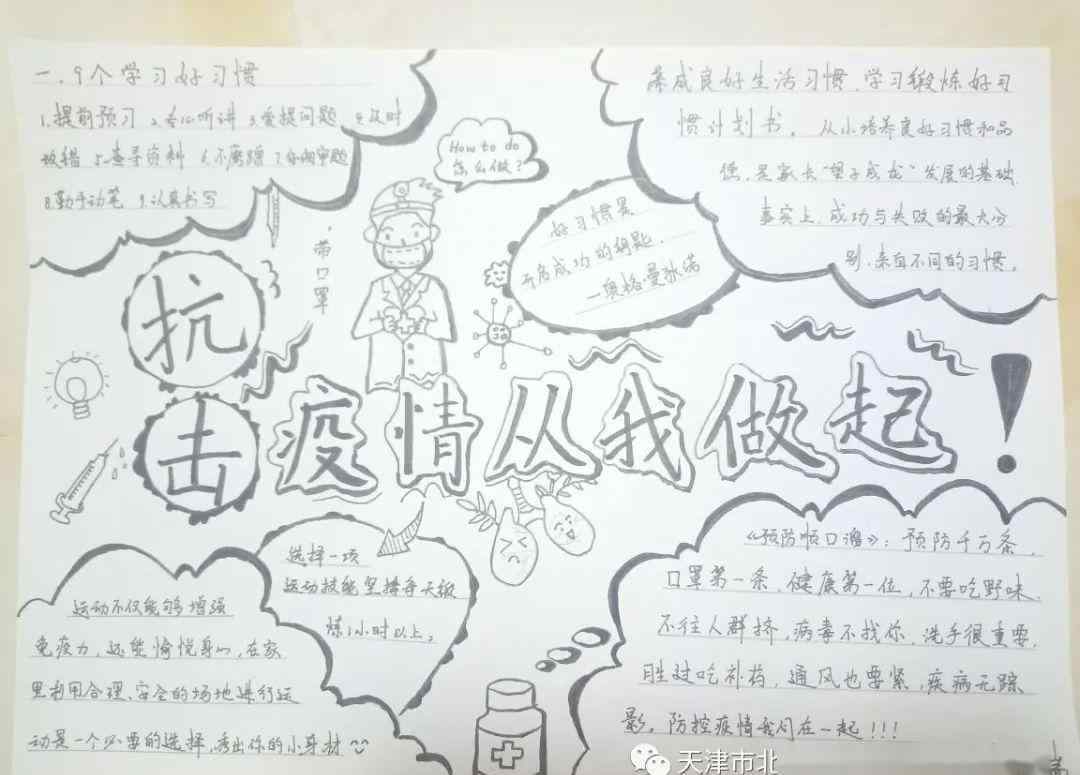 一、9个学习好习惯
1.提前预习 2.专心听讲 3.爱提问题 4.及时
改错 5.查寻资料 6.不磨蹭 7.仔细审题
8.勤于动笔 9.认真书写
How to do
怎么做？
戴口罩
好习惯是
开启成功的钥匙.
—奥格·曼狄诺
养成良好生活习惯、学习锻炼好习
惯计划书。从小培养良好习惯和品
德,是家长"望子成龙"发展的基础.
事实上,成功与失败的最大分
别,来自不同的习惯。
抗
击疫情从我做起！
选择一项
运动技能坚持每天锻
炼1小时以上。
运动不仅能够增强
免疫力,还能愉悦身心,在家
里利用合理、安全的场地进行运
动是一个必要的选择,秀出你的小身材
《预防顺口溜》：预防千万条，
口罩第一条、健康第一位,不要吃野味.
不往人群挤,病毒不找你.洗手很重要,
胜过吃补药,通风也要紧,疾病无踪
影。防控疫情我们在一起!!!
天津市北